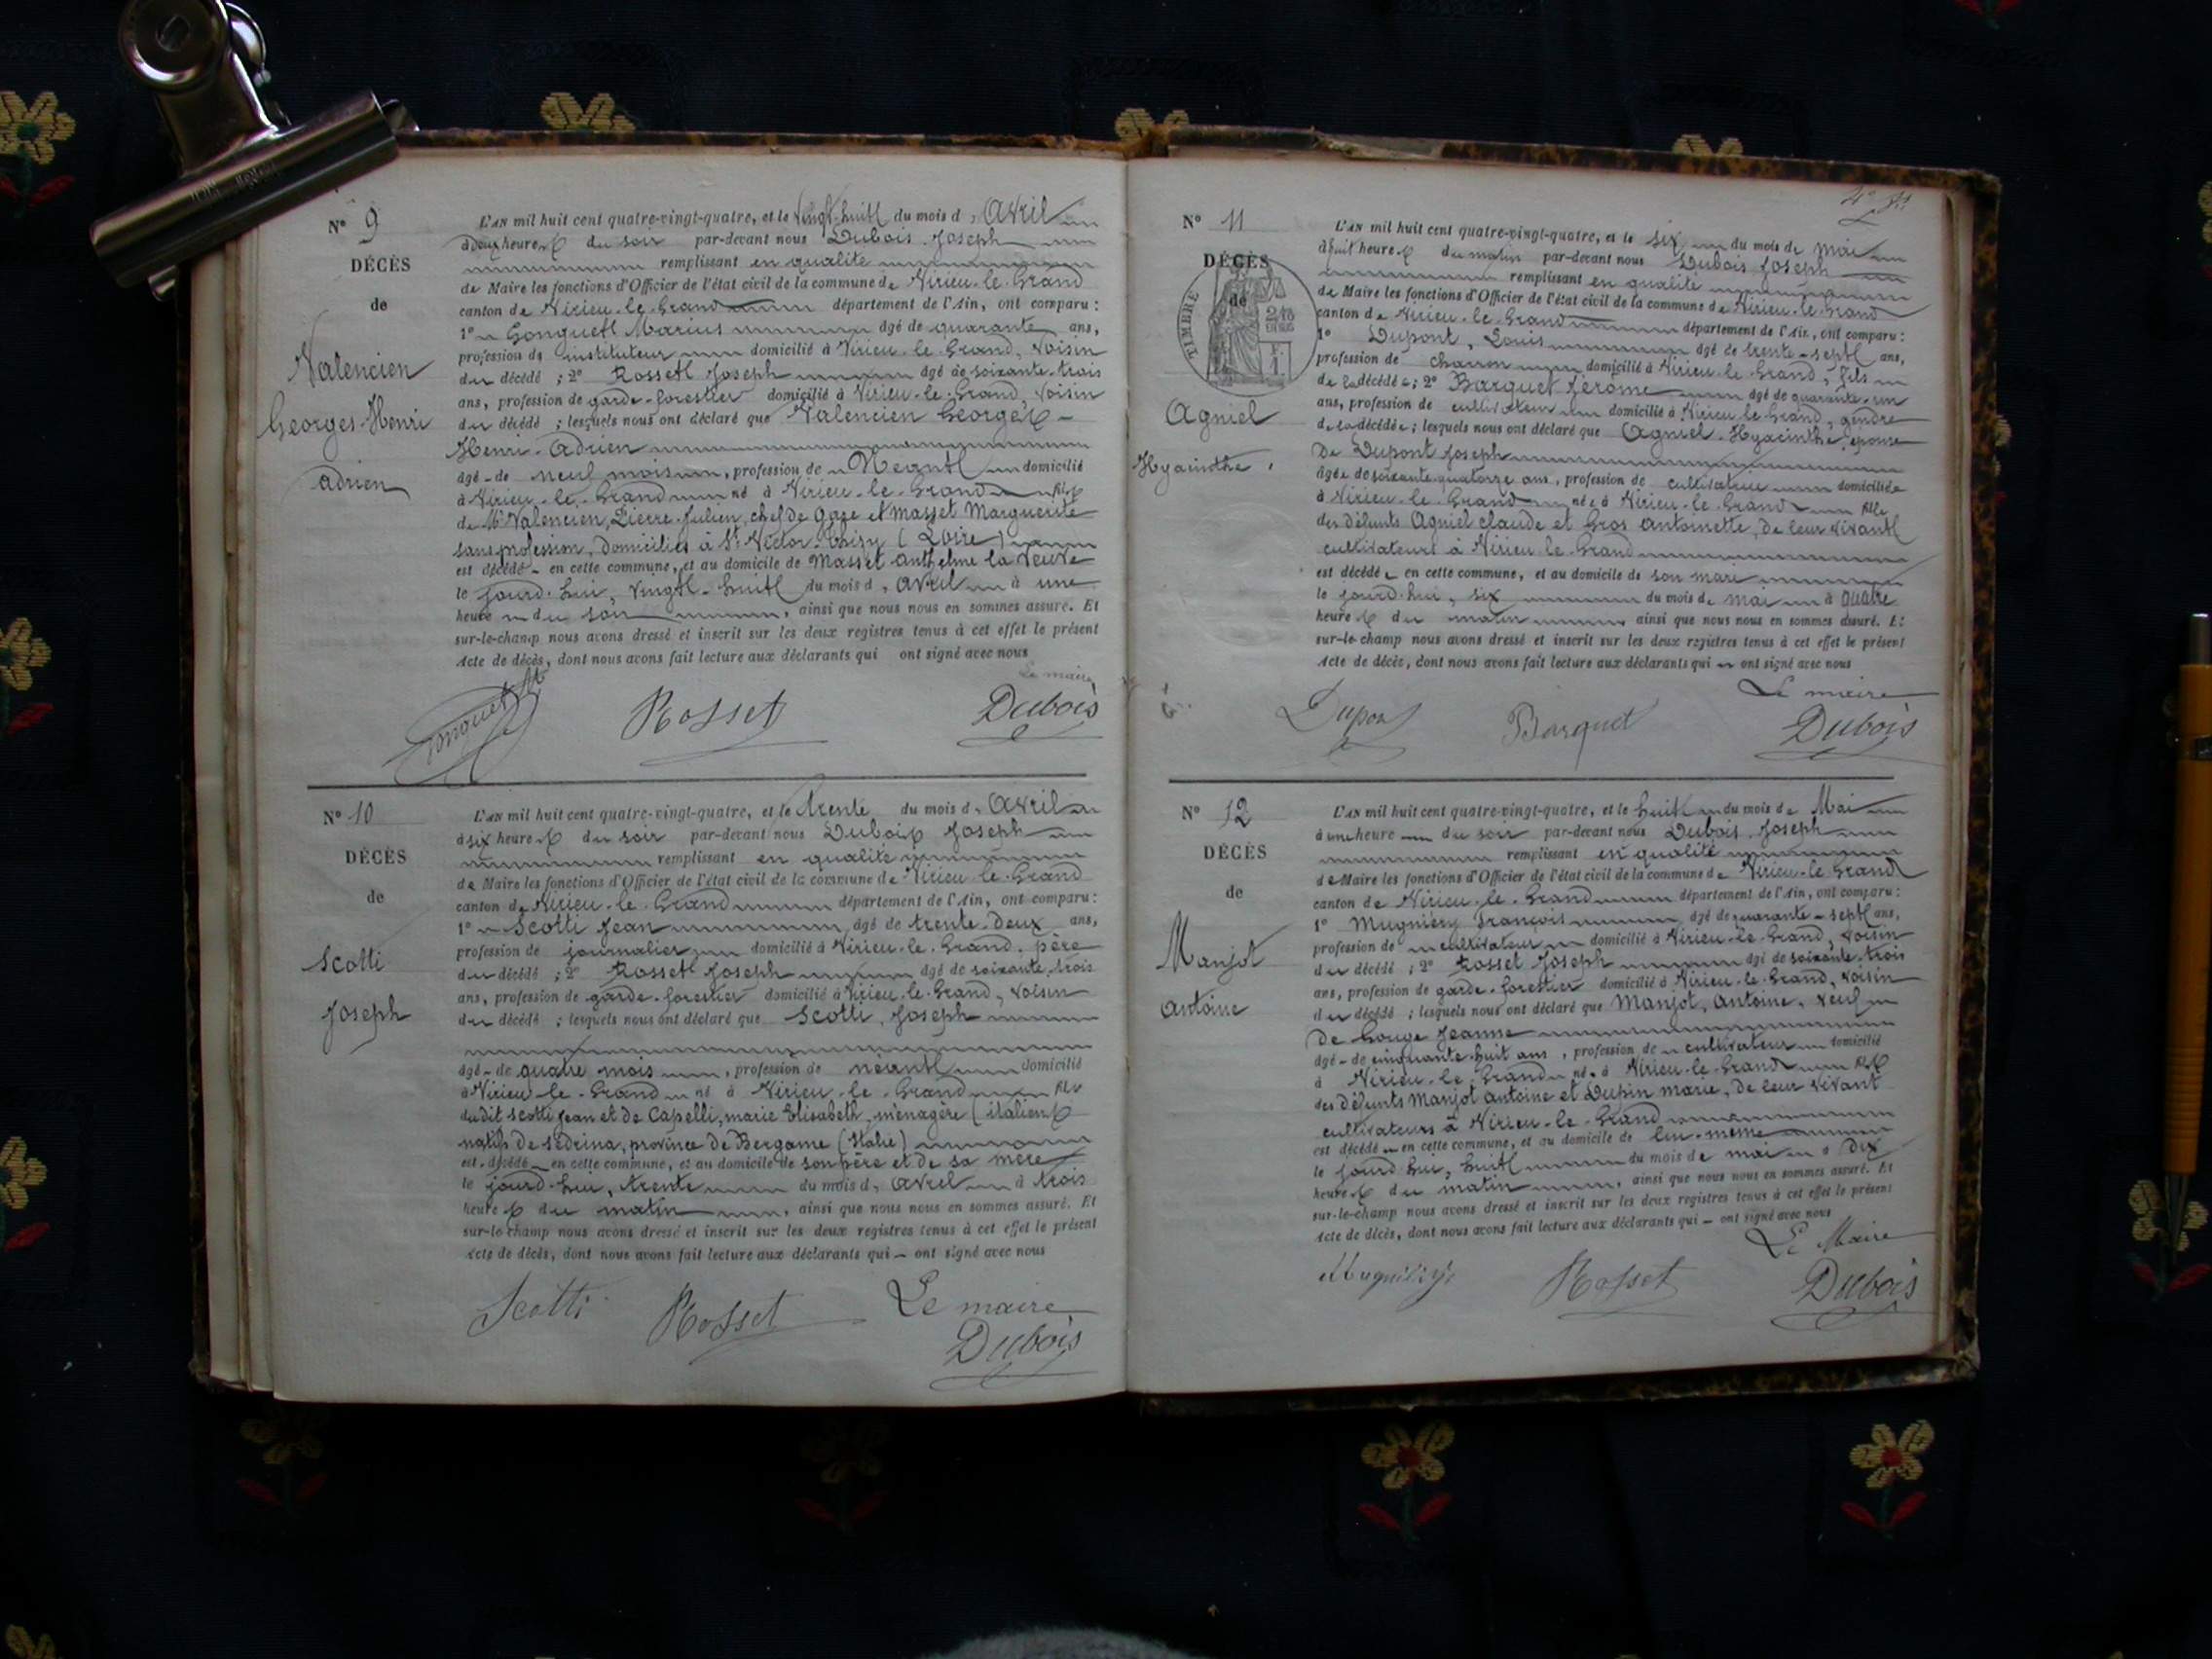 N° 9
DÉCÈS
de
Valencien
Georges-Henri
Adrien
L'AN mil huit cent quatre-vingt-quatre, et le vingt-huit du mois d'Avril
à deux heures du soir par-devant nous Dubois Joseph
remplissant en qualité
de Maire les fonctions d'Officier de l'état civil de la commune de Virieu-le-Grand
canton de Virieu-le-Grand département de l'Ain, ont comparu :
1° Marius âgé de quarante ans,
profession de instituteur domicilié à Virieu-le-Grand, voisin
du décédé ; 2° Rosset Joseph âgé de soixante-trois
ans, profession de garde-forestier domicilié à Virieu-le-Grand, voisin
du décédé ; lesquels nous ont déclaré que Valencien Georges-
Henri-Adrien
âgé de neuf mois, profession de Néant domicilié
à Virieu-le-Grand né à Virieu-le-Grand fils
de Mr Valencien, Pierre-Julien, chef de Gare et Masset Marguerite
sans profession, domiciliés à St Victor (Loire)
est décédé en cette commune, et au domicile de Masset Anthelme la veuve
le jourd'hui, vingt-huit du mois d'Avril à une
heure du soir, ainsi que nous nous en sommes assuré. Et
sur-le-champ nous avons dressé et inscrit sur les deux registres tenus à cet effet le présent
Acte de décès, dont nous avons fait lecture aux déclarants qui ont signé avec nous
Le maire
Rosset Dubois
N° 10
DÉCÈS
de
Scotti
Joseph
L'AN mil huit cent quatre-vingt-quatre, et le trente du mois d'Avril
à six heures du soir par-devant nous Dubois Joseph
remplissant en qualité
de Maire les fonctions d'Officier de l'état civil de la commune de Virieu-le-Grand
canton de Virieu-le-Grand département de l'Ain, ont comparu :
1° Scotti Jean âgé de trente-deux ans,
profession de journalier domicilié à Virieu-le-Grand, père
du décédé ; 2° Rosset Joseph âgé de soixante-trois
ans, profession de garde-forestier domicilié à Virieu-le-Grand, voisin
du décédé ; lesquels nous ont déclaré que Scotti, Joseph
âgé de quatre mois, profession de néant domicilié
à Virieu-le-Grand né à Virieu-le-Grand fils
dudit Scotti Jean et de Capelli, marie Elisabeth, ménagère (italiens)
natifs de Sédrina, province de Bergame (Italie)
est décédé en cette commune, et au domicile de son père et de sa mère
le jourd'hui, trente du mois d'Avril à trois
heures du matin, ainsi que nous nous en sommes assuré. Et
sur-le-champ nous avons dressé et inscrit sur les deux registres tenus à cet effet le présent
Acte de décès, dont nous avons fait lecture aux déclarants qui ont signé avec nous
Scotti Rosset Le maire
Dubois
N° 11
DÉCÈS
de
TIMBRE
Agniel
Hyacinthe
L'AN mil huit cent quatre-vingt-quatre, et le six du mois de Mai
à huit heures du matin par-devant nous Dubois Joseph
remplissant en qualité
de Maire les fonctions d'Officier de l'état civil de la commune de Virieu-le-Grand
canton de Virieu-le-Grand département de l'Ain, ont comparu :
1° Dupont, Louis âgé de trente-sept ans,
profession de charron domicilié à Virieu-le-Grand, fils
de la décédée ; 2° Barquet Jérome âgé de quarante-un
ans, profession de cultivateur domicilié à Virieu-le-Grand, gendre
de la décédée ; lesquels nous ont déclaré que Agniel Hyacinthe, épouse
De Dupont Joseph
âgée de soixante-quatorze ans, profession de cultivatrice domiciliée
à Virieu-le-Grand née à Virieu-le-Grand fille
des défunts Agniel Claude et Gros Antoinette, de leur vivant
cultivateurs à Virieu-le-Grand
est décédée en cette commune, et au domicile de son mari
le jourd'hui, six du mois de mai à quatre
heures du matin ainsi que nous nous en sommes assuré. Et
sur-le-champ nous avons dressé et inscrit sur les deux registres tenus à cet effet le présent
Acte de décès, dont nous avons fait lecture aux déclarants qui ont signé avec nous
Le maire
Dupont Barquet Dubois
N° 12
DÉCÈS
de
Manjot
Antoine
L'AN mil huit cent quatre-vingt-quatre, et le huit du mois de Mai
à une heure du soir par-devant nous Dubois Joseph
remplissant en qualité
de Maire les fonctions d'Officier de l'état civil de la commune de Virieu-le-Grand
canton de Virieu-le-Grand département de l'Ain, ont comparu :
1° Mugniéry François âgé de quarante-sept ans,
profession de cultivateur domicilié à Virieu-le-Grand, voisin
du décédé ; 2° Rosset Joseph âgé de soixante-trois
ans, profession de garde-forestier domicilié à Virieu-le-Grand, voisin
du décédé ; lesquels nous ont déclaré que Manjot, Antoine, veuf
De Gouge Jeanne
âgé de cinquante-huit ans, profession de cultivateur domicilié
à Virieu-le-Grand né à Virieu-le-Grand fils
des défunts Manjot Antoine et Dupin marie, de leur vivant
cultivateurs à Virieu-le-Grand
est décédé en cette commune, et au domicile de lui-même
le jourd'hui, huit du mois de mai à Dix
heures du matin, ainsi que nous nous en sommes assuré. Et
sur-le-champ nous avons dressé et inscrit sur les deux registres tenus à cet effet le présent
Acte de décès, dont nous avons fait lecture aux déclarants qui ont signé avec nous
Le Maire
Rosset Dubois